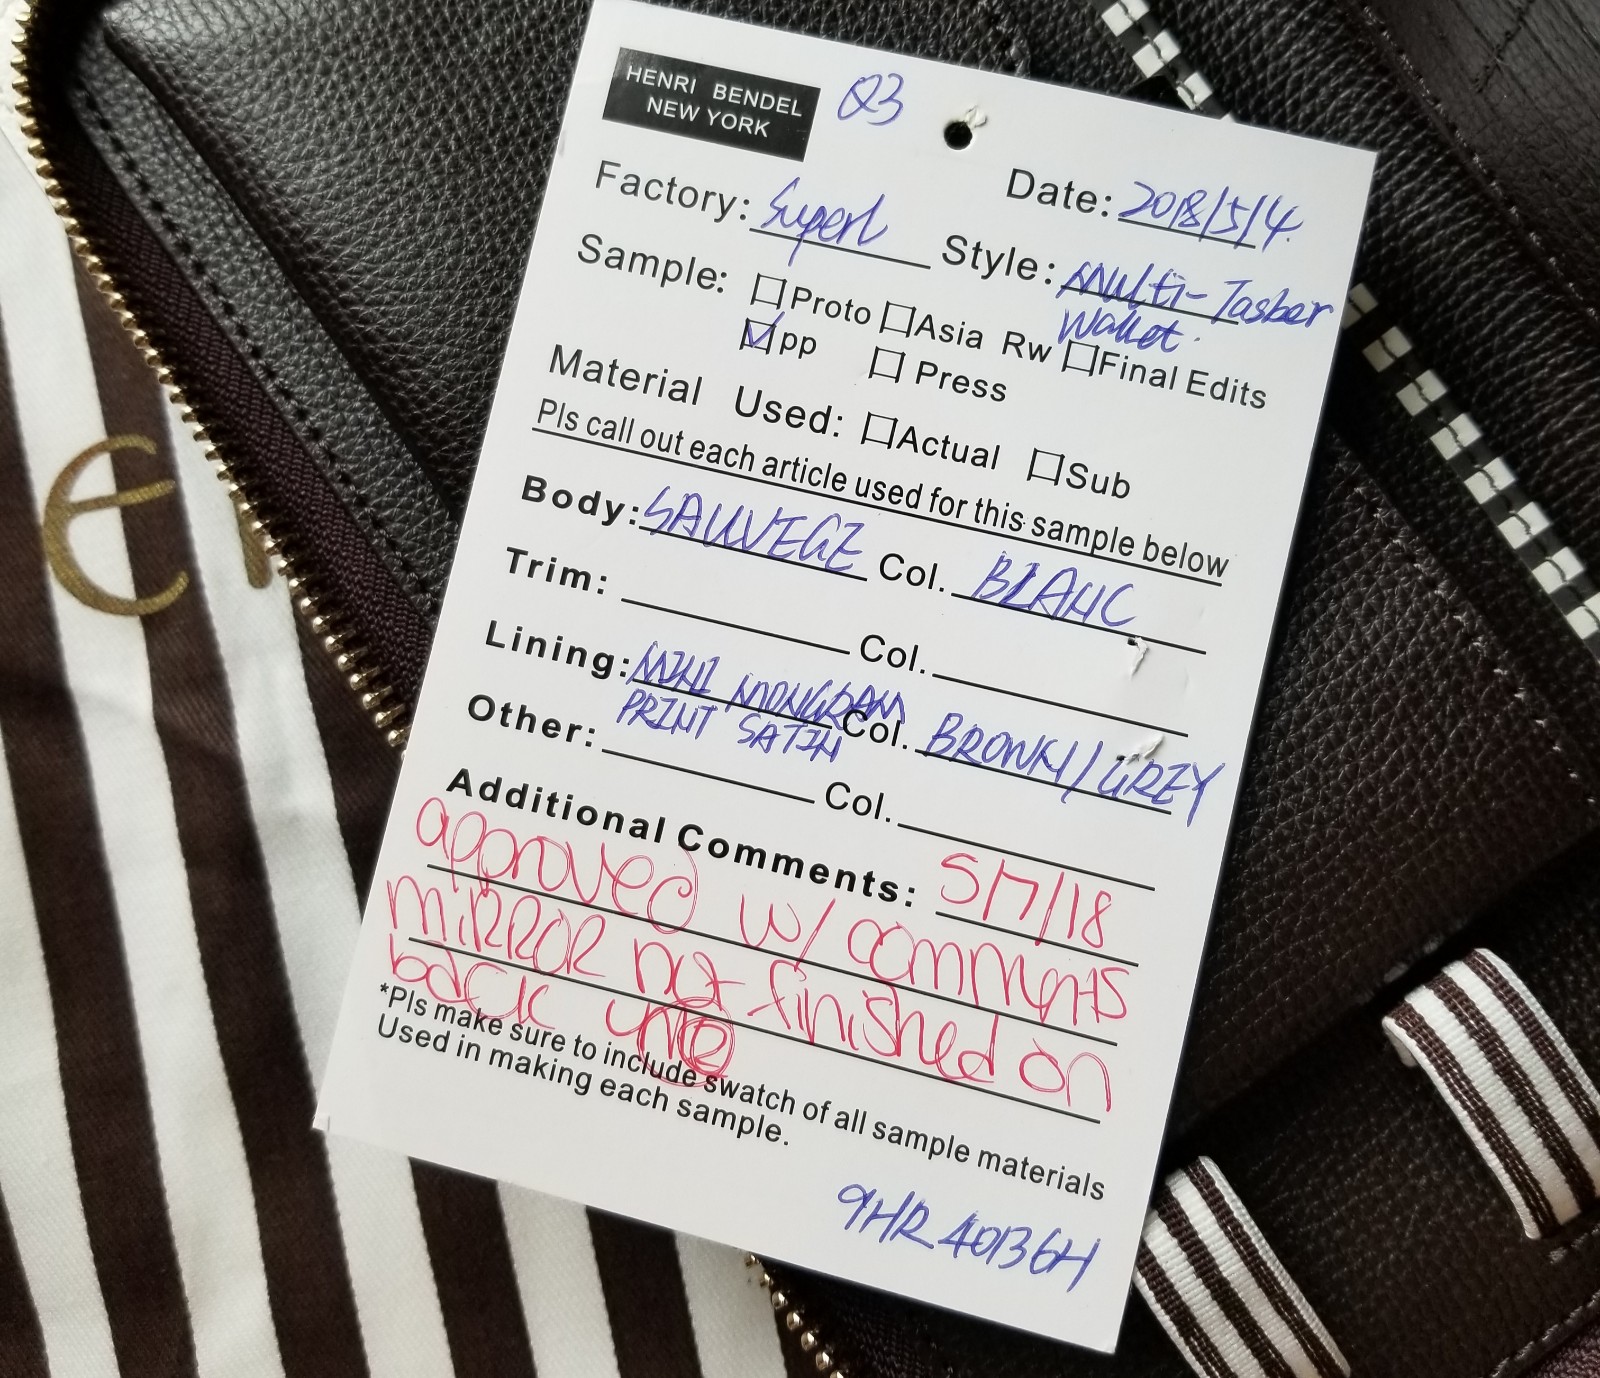 HENRI BENDEL
NEW YORK
Q3
Date: 2018/5/4.
Factory: Superl
Style: Multi-Tasber
Wallet.
Sample: Proto Asia Rw Final Edits
pp Press
Material Used: Actual Sub
Pls call out each article used for this sample below
Body: SAUVEGE Col. BLANC
Trim: Col.
Lining: MINI MONGRAM Col. BROWN/GREY
PRINT SATIN
Other: Col.
Additional Comments: 5/7/18
approved w/ comments
MIRROR not finished on
back
*Pls make sure to include swatch of all sample materials
Used in making each sample.
9HR40136H
e